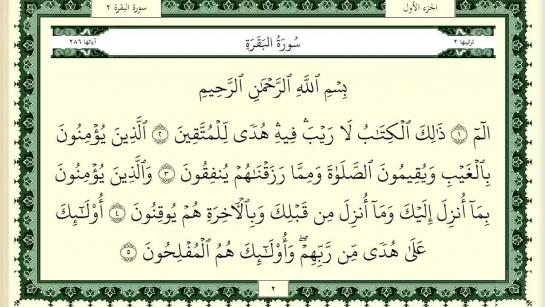 الجزء الأول
سورة البقرة ٢
ترتيبها ٢
سُورَةُ البَقَرَةِ
آياتها ٢٨٦
بِسْمِ اللَّهِ الرَّحْمَٰنِ الرَّحِيمِ
الٓمٓ ١ ذَٰلِكَ الْكِتَابُ لَا رَيْبَ ۛ فِيهِ ۛ هُدًى لِّلْمُتَّقِينَ ٢ الَّذِينَ يُؤْمِنُونَ
بِالْغَيْبِ وَيُقِيمُونَ الصَّلَوٰةَ وَمِمَّا رَزَقْنَاهُمْ يُنفِقُونَ ٣ وَالَّذِينَ يُؤْمِنُونَ
بِمَا أُنزِلَ إِلَيْكَ وَمَا أُنزِلَ مِن قَبْلِكَ وَبِالْآخِرَةِ هُمْ يُوقِنُونَ ٤ أُولَٰئِكَ
عَلَىٰ هُدًى مِّن رَّبِّهِمْ ۖ وَأُولَٰئِكَ هُمُ الْمُفْلِحُونَ ٥
٢